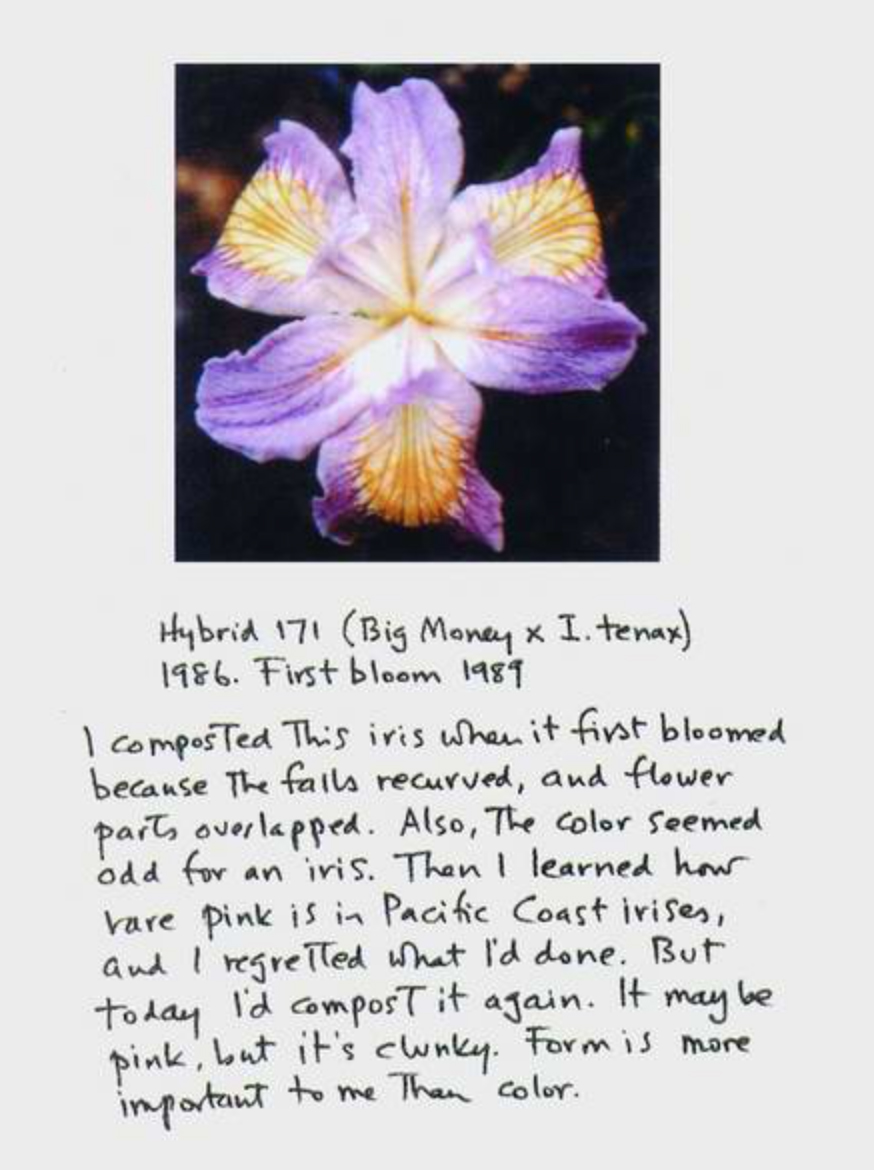 Hybrid 171 (Big Money x I. tenax)
1986. First bloom 1989
I composted this iris when it first bloomed
because the falls recurved, and flower
parts overlapped. Also, the color seemed
odd for an iris. Then I learned how
rare pink is in Pacific Coast irises,
and I regretted what I'd done. But
today I'd compost it again. It may be
pink, but it's clunky. Form is more
important to me than color.